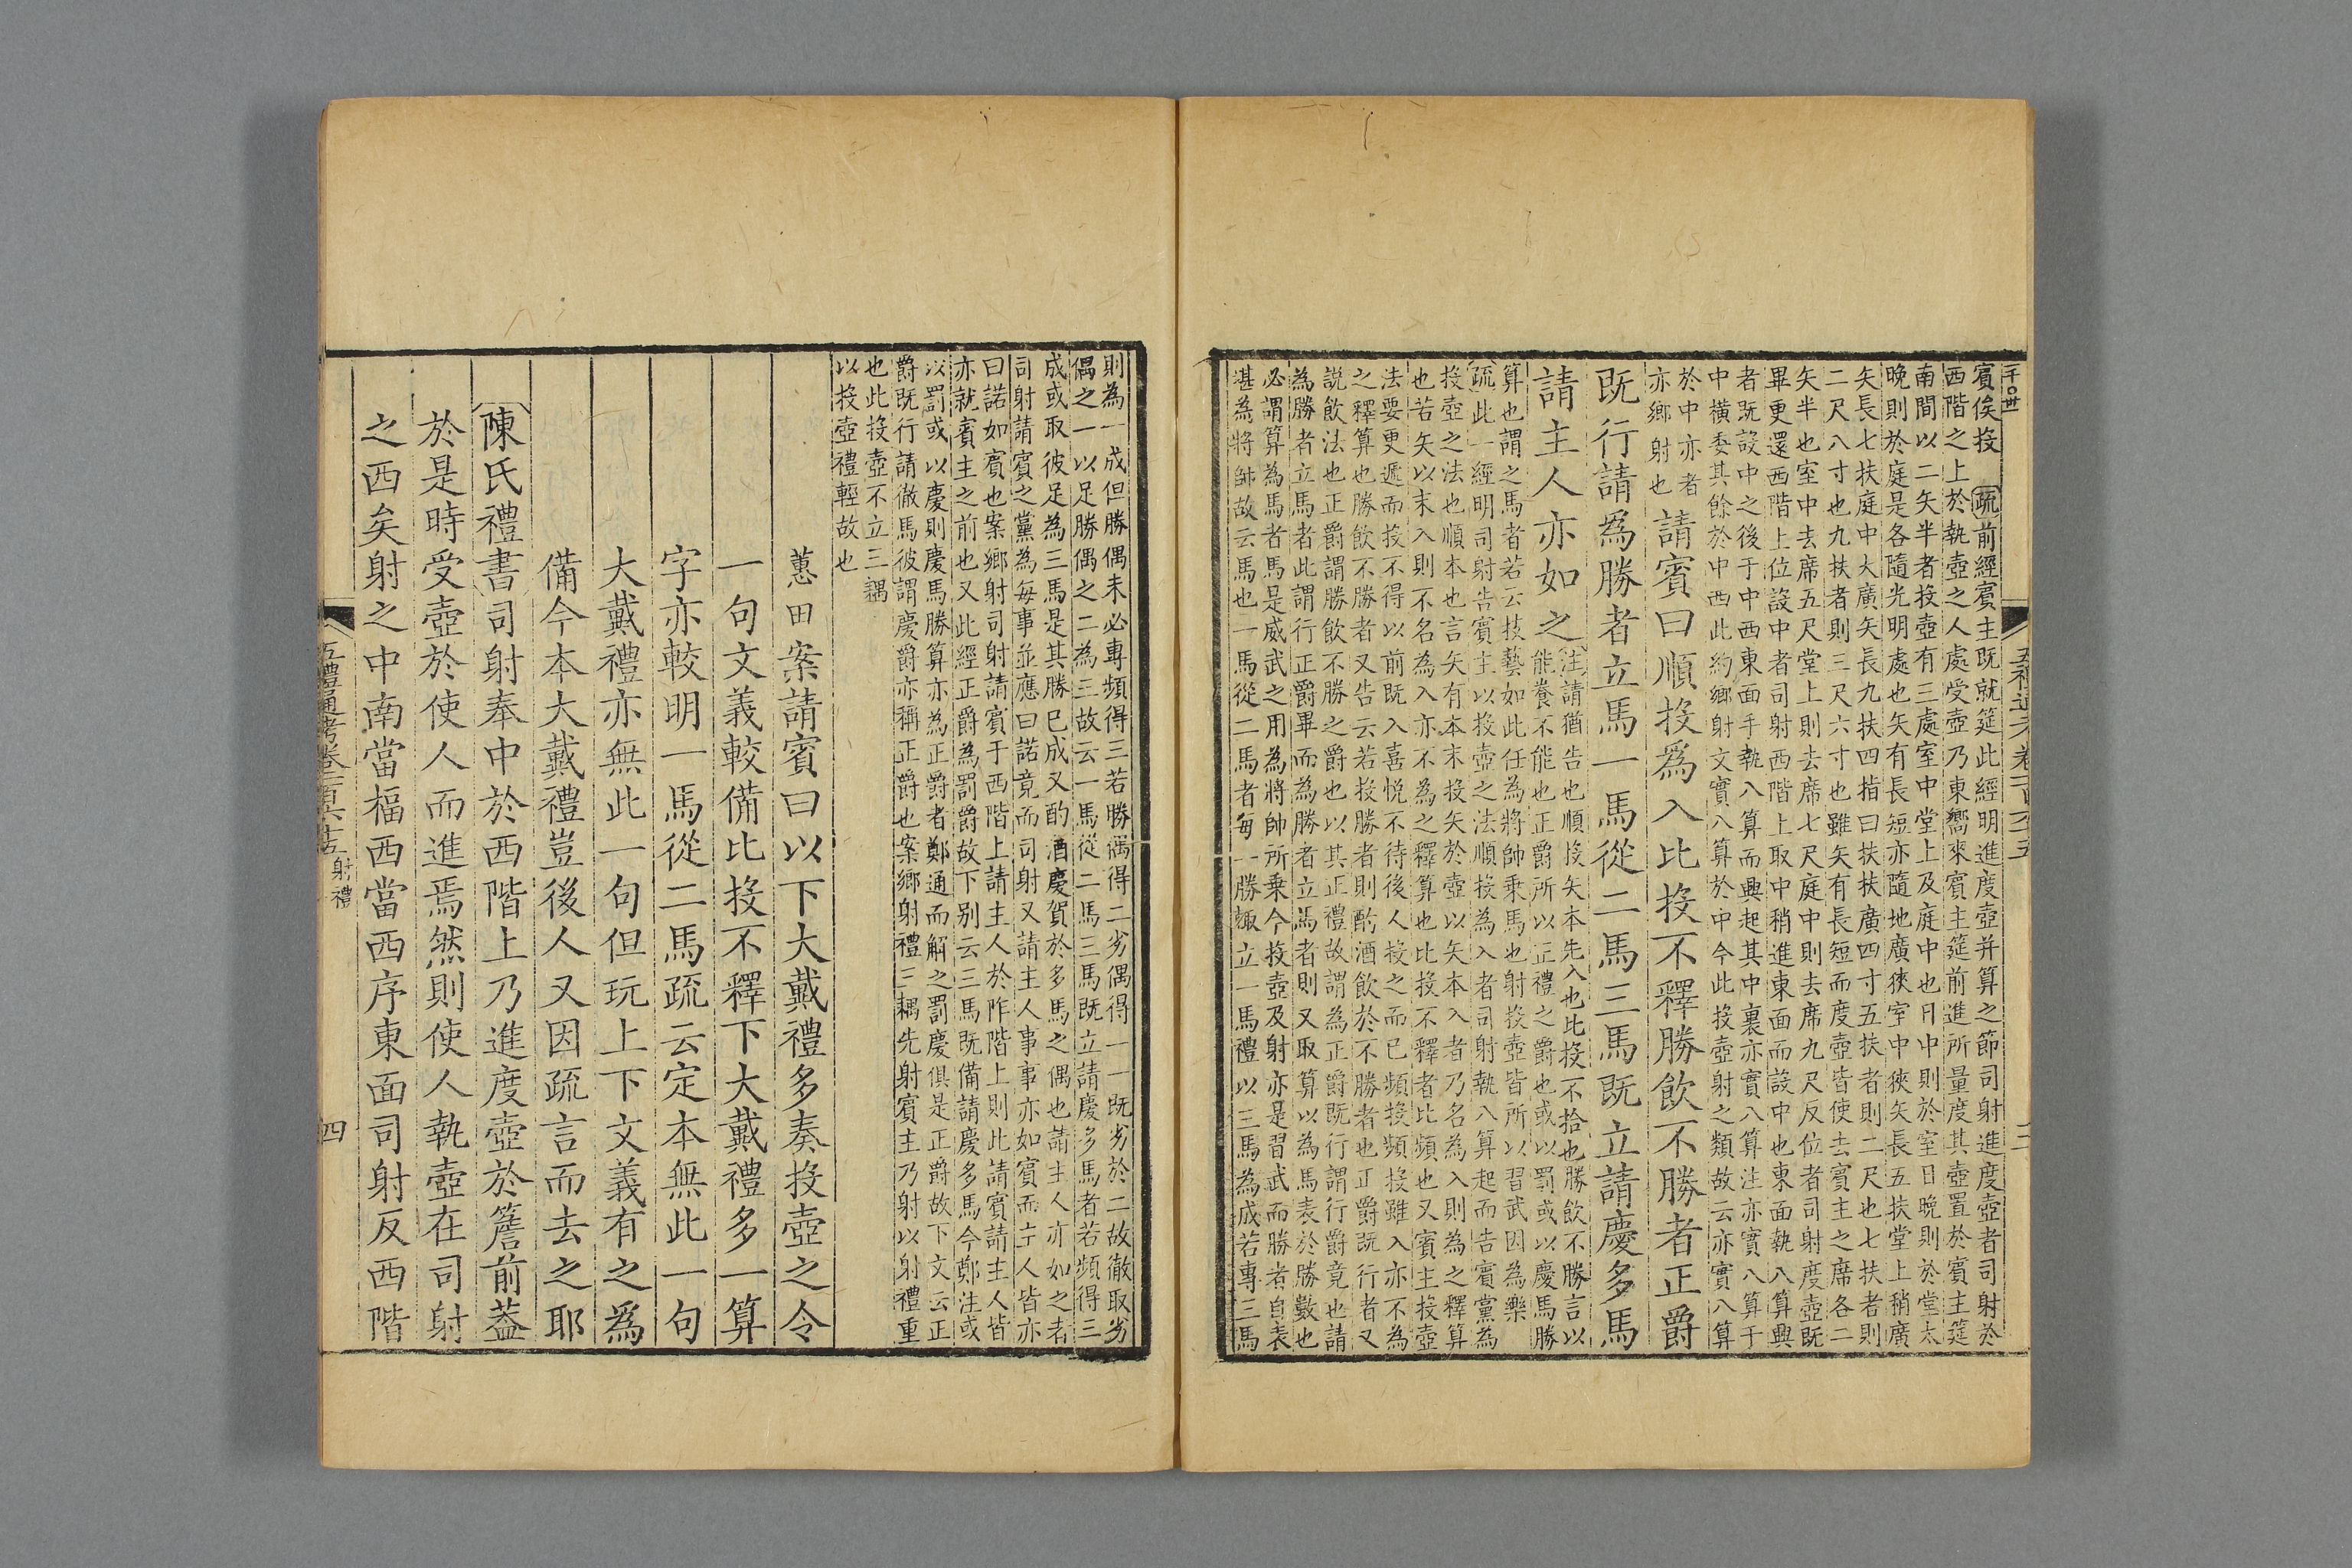 賓俟投　疏前經賓主既就筵此經明進度壺并算之節司射進度壺者司射於
西階之上於執壺之人處受壺乃東嚮來賓主筵前進所量度其壺置於賓主筵
南間以二矢半者投壺有三處室中堂上及庭中也日中則於室日晚則於堂太
晚則於庭是各隨光明處也矢有長短亦隨地廣狹室中狹矢長五扶堂上稍廣
矢長七扶庭中大廣矢長九扶四指曰扶扶廣四寸五扶者則二尺也七扶者則
二尺八寸也九扶者則三尺六寸也雖矢有長短而度壺皆使去賓主之席各二
矢半也室中去席五尺堂上則去席七尺庭中則去席九尺反位者司射度壺既
畢更還西階上位設中者司射西階上取中稍進東面而設中也東面執八算興
者既設中之後于中西東面手執八算而興起其中裏亦實八算注亦實八算于
中橫委其餘於中西此約鄉射文實八算於中今此投壺射之類故云亦實八算
於中亦者
亦鄉射也
請賓曰順投爲入比投不釋勝飲不勝者正爵
既行請爲勝者立馬一馬從二馬三馬既立請慶多馬
請主人亦如之
注請猶告也順投矢本先入也比投不拾也勝飲不勝言以
能養不能也正爵所以正禮之爵也或以罰或以慶馬勝
算也謂之馬者若云技藝如此任為將帥乘馬也射投壺皆所以習武因為樂
疏此一經明司射告賓主以投壺之法順投為入者司射執八算起而告賓黨為
投壺之法也順本也言矢有本末投矢於壺以矢本入者乃名為入則為之釋算
也若矢以末入則不名為入亦不為之釋算也比投不釋者比頻也又賓主投壺
法要更遞而投不得以前既入喜悅不待後人投之而已頻投頻投雖入亦不為
之釋算也勝飲不勝者又告云若投勝者則酌酒飲於不勝者也正爵既行者又
說飲法也正爵謂勝飲不勝之爵也以其正禮故謂為正爵既行謂行爵竟也請
為勝者立馬者此謂行正爵畢而為勝者立馬者則又取算以為馬表於勝數也
必謂算為馬者馬是威武之用為將帥所乘今投壺及射亦是習武而勝者自表
堪為將帥故云馬也一馬從二馬者每一勝輒立一馬禮以三馬為成若專三馬
則為一成但勝偶未必專頻得三若勝偶得二劣偶得一一既劣於二故徹取劣
偶之一以足勝偶之二為三故云一馬從二馬三馬既立請慶多馬者若頻得三
成或取彼足為三馬是其勝已成又酌酒慶賀於多馬之偶也請主人亦如之者
司射請賓之黨為每事並應曰諾竟而司射又請主人事事亦如賓而主人皆亦
曰諾如賓也案鄉射司射請賓于西階上請主人於阼階上則此請賓請主人皆
亦就賓主之前也又此經正爵為罰爵故下别云三馬既備請慶多馬今鄭注或
以罰或以慶則慶馬勝算亦為正爵者鄭通而解之罰慶俱是正爵故下文云正
爵既行請徹馬彼謂慶爵亦稱正爵也案鄉射禮三耦先射賓主乃射以射禮重
也此投壺不立三耦
以投壺禮輕故也
蕙田案請賓曰以下大戴禮多奏投壺之令
一句文義較備比投不釋下大戴禮多一算
字亦較明一馬從二馬疏云定本無此一句
大戴禮亦無此一句但玩上下文義有之爲
備今本大戴禮豈後人又因疏言而去之耶
陳氏禮書司射奉中於西階上乃進度壺於簷前葢
於是時受壺於使人而進焉然則使人執壺在司射
之西矣射之中南當楅西當西序東面司射反西階
五禮通考卷一百六十五　射禮
四